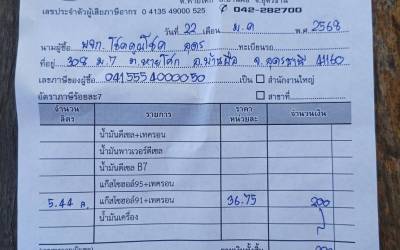 เลขประจำตัวผู้เสียภาษีอากร 0 4135 49000 525 042-282700
วันที่ 22 เดือน ม.ค พ.ศ. 2568
นามผู้ซื้อ หจก. โชคคูณโชค อุดร ทะเบียนรถ
ที่อยู่ 308 ม.7 ต.หายโศก อ.บ้านผือ จ.อุดรธานี 41160
เลขภาษีของผู้ซื้อ 0415554000050 เป็น สำนักงานใหญ่
อัตราภาษีร้อยละ7 สาขาที่
จำนวนลิตร รายการ ราคาหน่วยละ จำนวนเงิน
น้ำมันดีเซล+เทครอน
น้ำมันพาวเวอร์ดีเซล
น้ำมันดีเซล B7
แก๊สโซฮอล์95+เทครอน
5.44 ล. แก๊สโซฮอล์91+เทครอน 36.75 200
น้ำมันเครื่อง